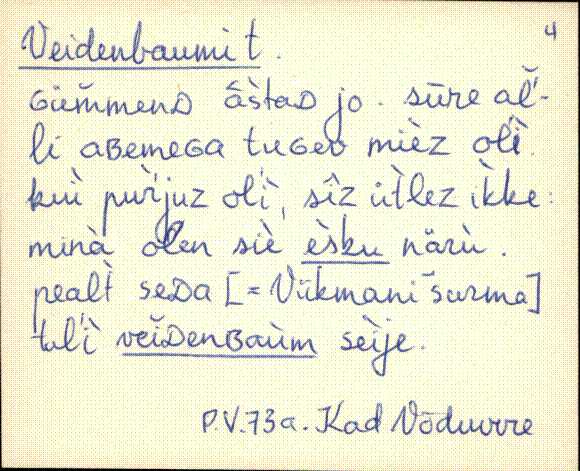 4
Veidenbaumi t.
Giem̆menD āštaD jo. sūre al̆-
li aBemeGa tuGev mièz ol̀i.
kui pur̀juz ol̀i, sîz ütlez ìkke:
minà olen siè èsku nārù.
pealt seDa [= Vīkmani surma]
tul̀i veiDenBaùm seìje.
P.V.73a. Kad Võduvere